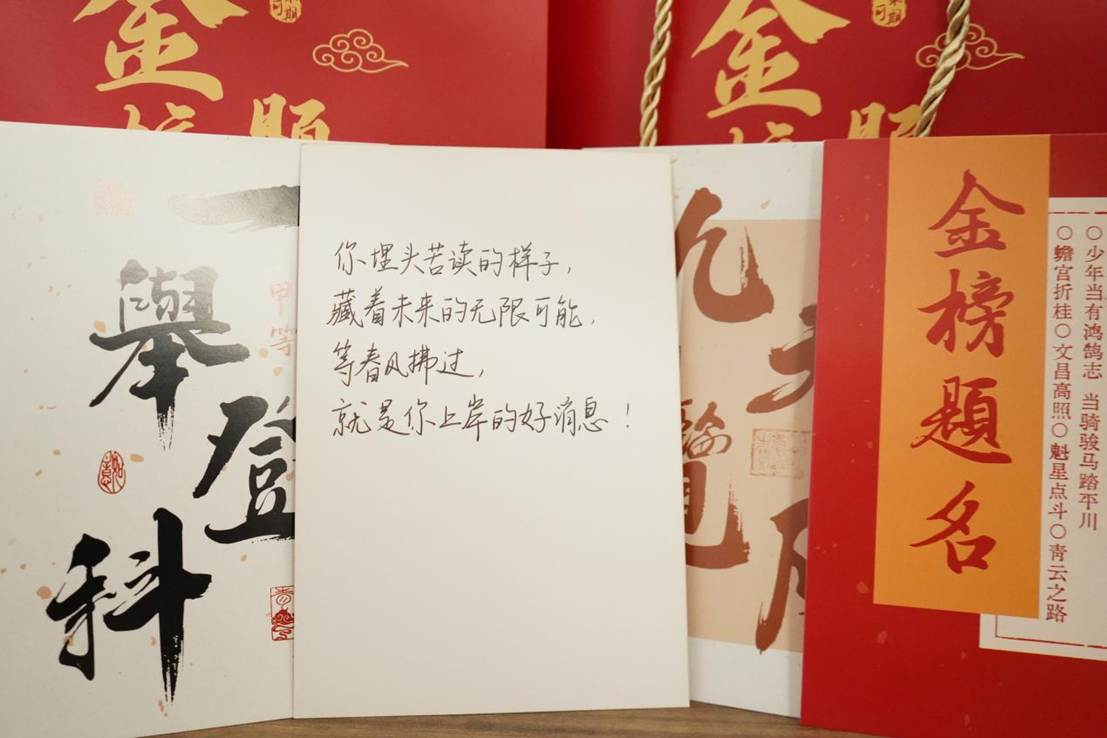 金
题
金
题
一
舉
登
科
甲等
你埋头苦读的样子,
藏着未来的无限可能,
等春风拂过,
就是你上岸的好消息!
览
金榜题名
○少年当有鸿鹄志 当骑骏马踏平川
○蟾宫折桂○文昌高照○魁星点斗○青云之路